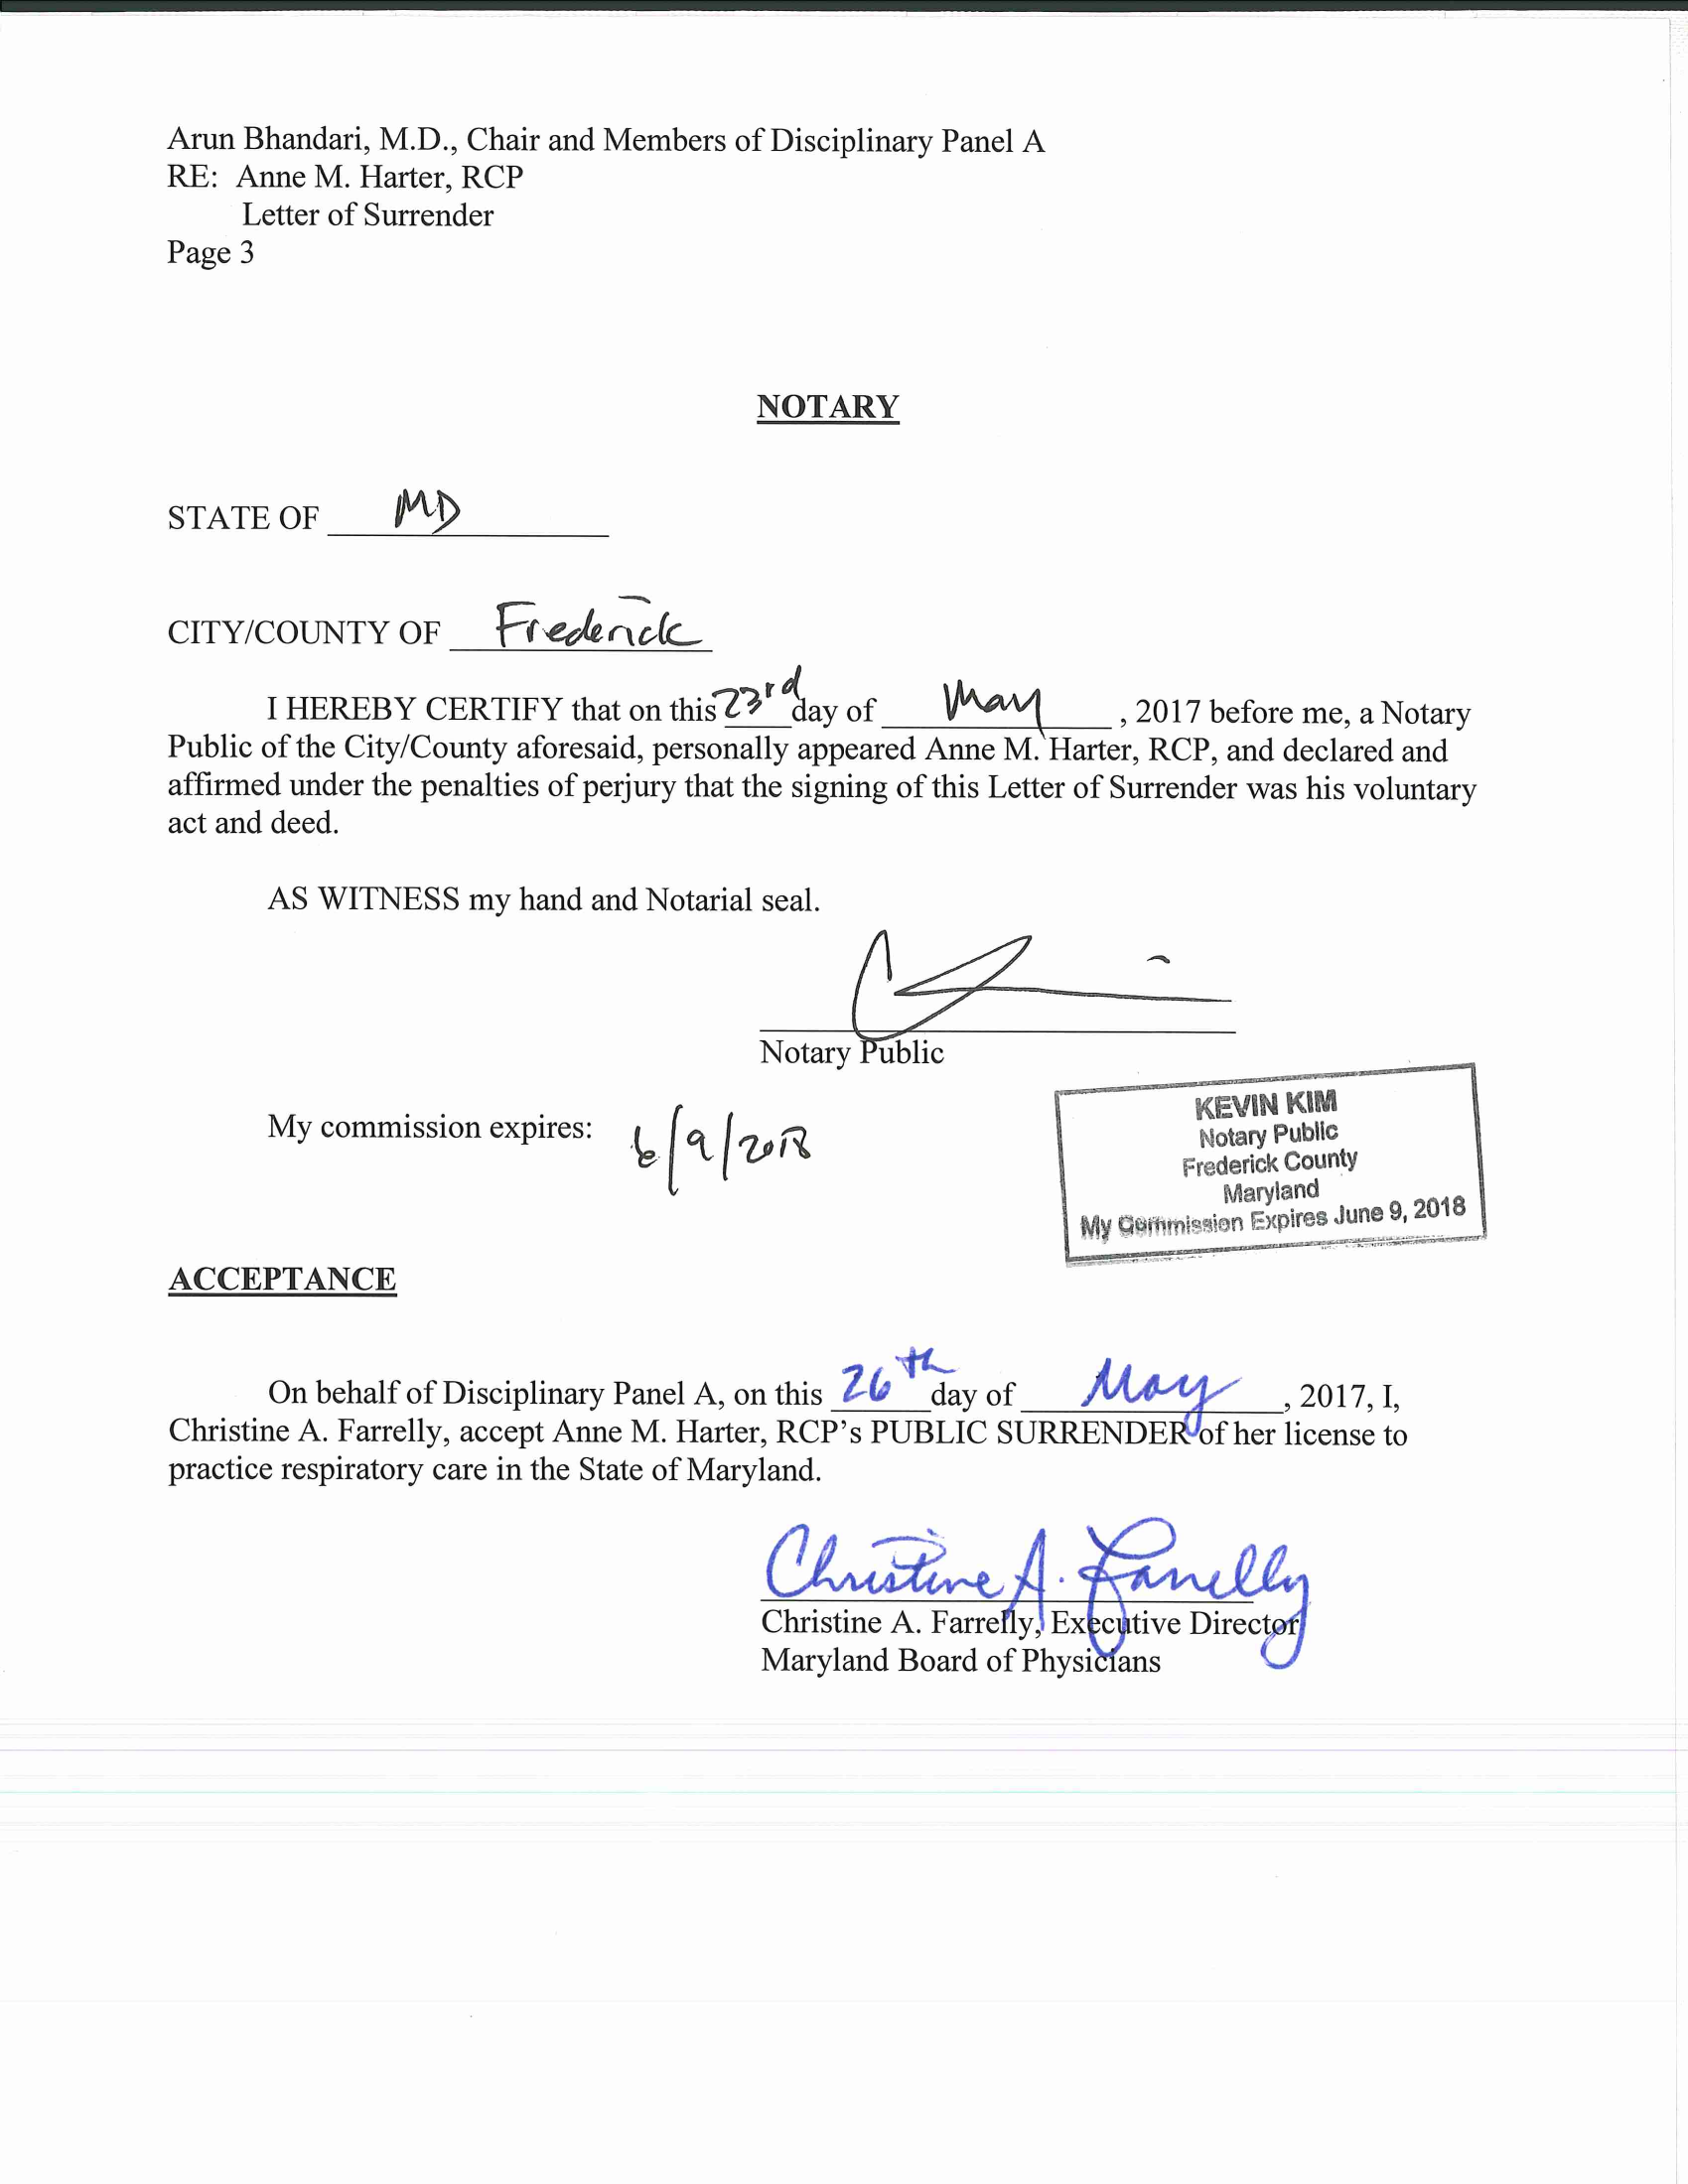 Arun Bhandari, M.D., Chair and Members of Disciplinary Panel A
RE: Anne M. Harter, RCP
Letter of Surrender
Page 3
NOTARY
STATE OF MD
CITY/COUNTY OF Frederick
I HEREBY CERTIFY that on this 23rd day of May, 2017 before me, a Notary
Public of the City/County aforesaid, personally appeared Anne M. Harter, RCP, and declared and
affirmed under the penalties of perjury that the signing of this Letter of Surrender was his voluntary
act and deed.
AS WITNESS my hand and Notarial seal.
Notary Public
My commission expires: 6/9/2018
KEVIN KIM
Notary Public
Frederick County
Maryland
My Commission Expires June 9, 2018
ACCEPTANCE
On behalf of Disciplinary Panel A, on this 26th day of May, 2017, I,
Christine A. Farrelly, accept Anne M. Harter, RCP's PUBLIC SURRENDER of her license to
practice respiratory care in the State of Maryland.
Christine A. Farrelly
Christine A. Farrelly, Executive Director
Maryland Board of Physicians